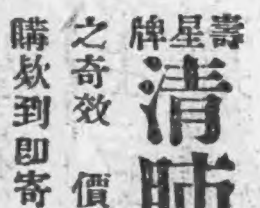 壽星牌
清肺
之奇效 價
購欵到即寄